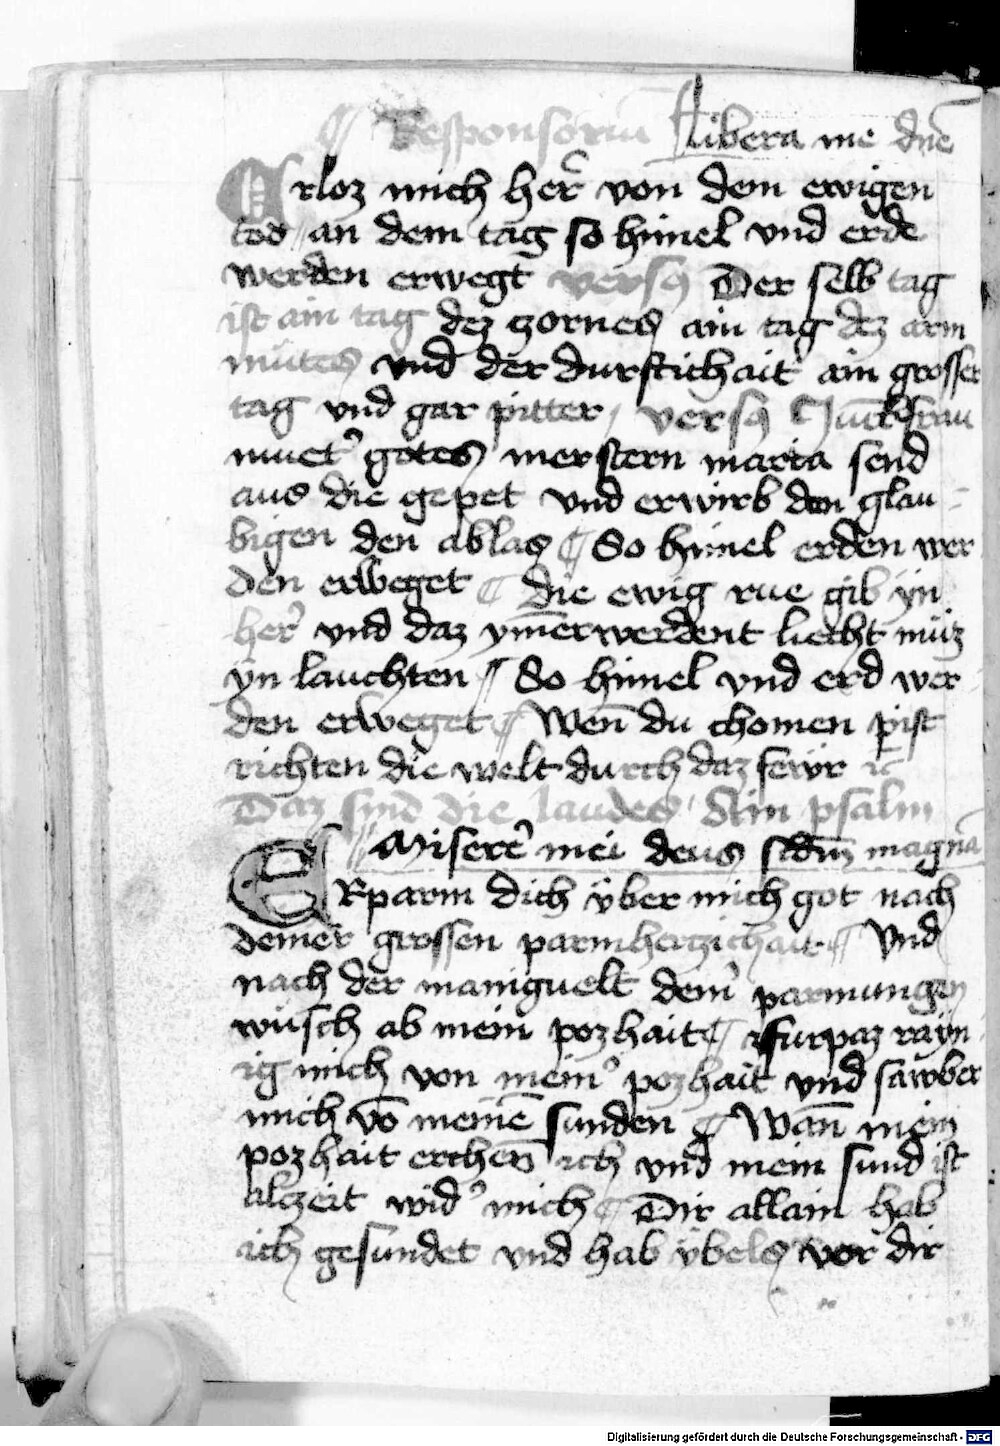 ¶ Responsoriū Libera me dn̄e
Erloz mich her̄ von dem ewigen
tod // an dem tag so himel vnd erde
werden erwegt versꝫ Der selb tag
ist ain tag dez zornes ain tag dez arm
mütes vnd der durftichait ain grosser
tag vnd gar pitter / versꝫ Juckfrau
muet’ gotes merstern maria send
aus die gepet vnd erwirb den glau =
bigen den ablas ¶ So himel erden wer
den erbeget ¶ die ewig rue gib ÿn
her’ vnd daz ym̄erwerdent liecht müz
ÿn lauchten ¶ So himel vnd erd wer
den erweget ¶ Wen̄ du chomen pist
richten die welt durch daz fewr ꝛc
Daz sind die laudes Ain psalm
¶ Miserē mei deus scd̄m magnā
ERparm dich ÿber mich got nach
deiner grossen parmhertzichait ¶ Vnd
nach der maniguelt dein’ parmungen
wüsch ab mein pozhait ¶ furpaz rayn
ig mich von mein’ pozhait vnd sawber
mich vō meinē sunden ¶ Wan̄ mein
pozhait erchen̄ ich vnd mein sund ist
alczeit wid’ mich ¶ Dir allain hab
ich gesundet vnd hab ÿbels vor dir
Digitalisierung gefördert durch die Deutsche Forschungsgemeinschaft - DFG